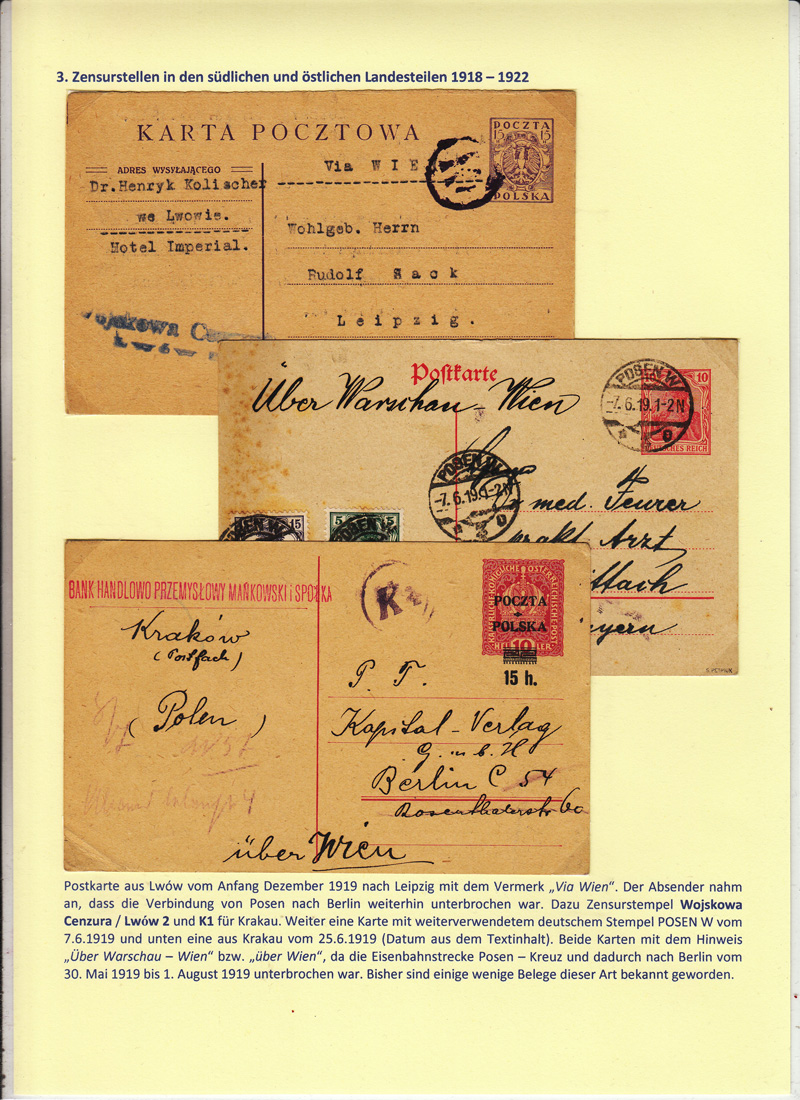 3. Zensurstellen in den südlichen und östlichen Landesteilen 1918 – 1922
KARTA POCZTOWA
POCZTA
15 15
POLSKA
ADRES WYSYŁAJĄCEGO
Dr.Henryk Kolischer
we Lwowie.
Hotel Imperial.
Via WIE
Wohlgeb. Herrn
Rudolf Sack
Leipzig.
Wojskowa
Lwów
Postkarte
Über Warschau - Wien
POSEN W
-7.6.19.1-2N
10
REICH
POSEN W
-7.6.19.1-2N
Dr med. Feurer
prakt Arzt
15
5
POSEN W
BANK HANDLOWO PRZEMYSŁOWY MAŃKOWSKI i SPÓŁKA
K
KAISERLICHE KÖNIGLICHE ÖSTERREICHISCHE POST
POCZTA
POLSKA
HELLER
10
15 h.
Kraków
(Postfach)
(Polen)
P. T.
Kapital-Verlag
G. m b. H
Berlin C 54
Rosenthalerstr 60
über Wien
Postkarte aus Lwów vom Anfang Dezember 1919 nach Leipzig mit dem Vermerk „Via Wien“. Der Absender nahm
an, dass die Verbindung von Posen nach Berlin weiterhin unterbrochen war. Dazu Zensurstempel Wojskowa
Cenzura / Lwów 2 und K1 für Krakau. Weiter eine Karte mit weiterverwendetem deutschem Stempel POSEN W vom
7.6.1919 und unten eine aus Krakau vom 25.6.1919 (Datum aus dem Textinhalt). Beide Karten mit dem Hinweis
„Über Warschau – Wien“ bzw. „über Wien“, da die Eisenbahnstrecke Posen – Kreuz und dadurch nach Berlin vom
30. Mai 1919 bis 1. August 1919 unterbrochen war. Bisher sind einige wenige Belege dieser Art bekannt geworden.